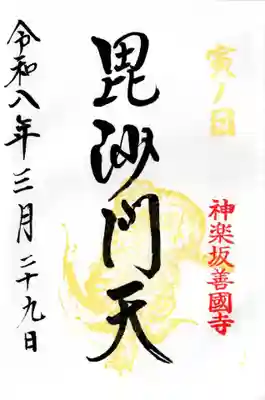 寅ノ日
神楽坂善國寺
毘沙門天
令和八年三月二十九日